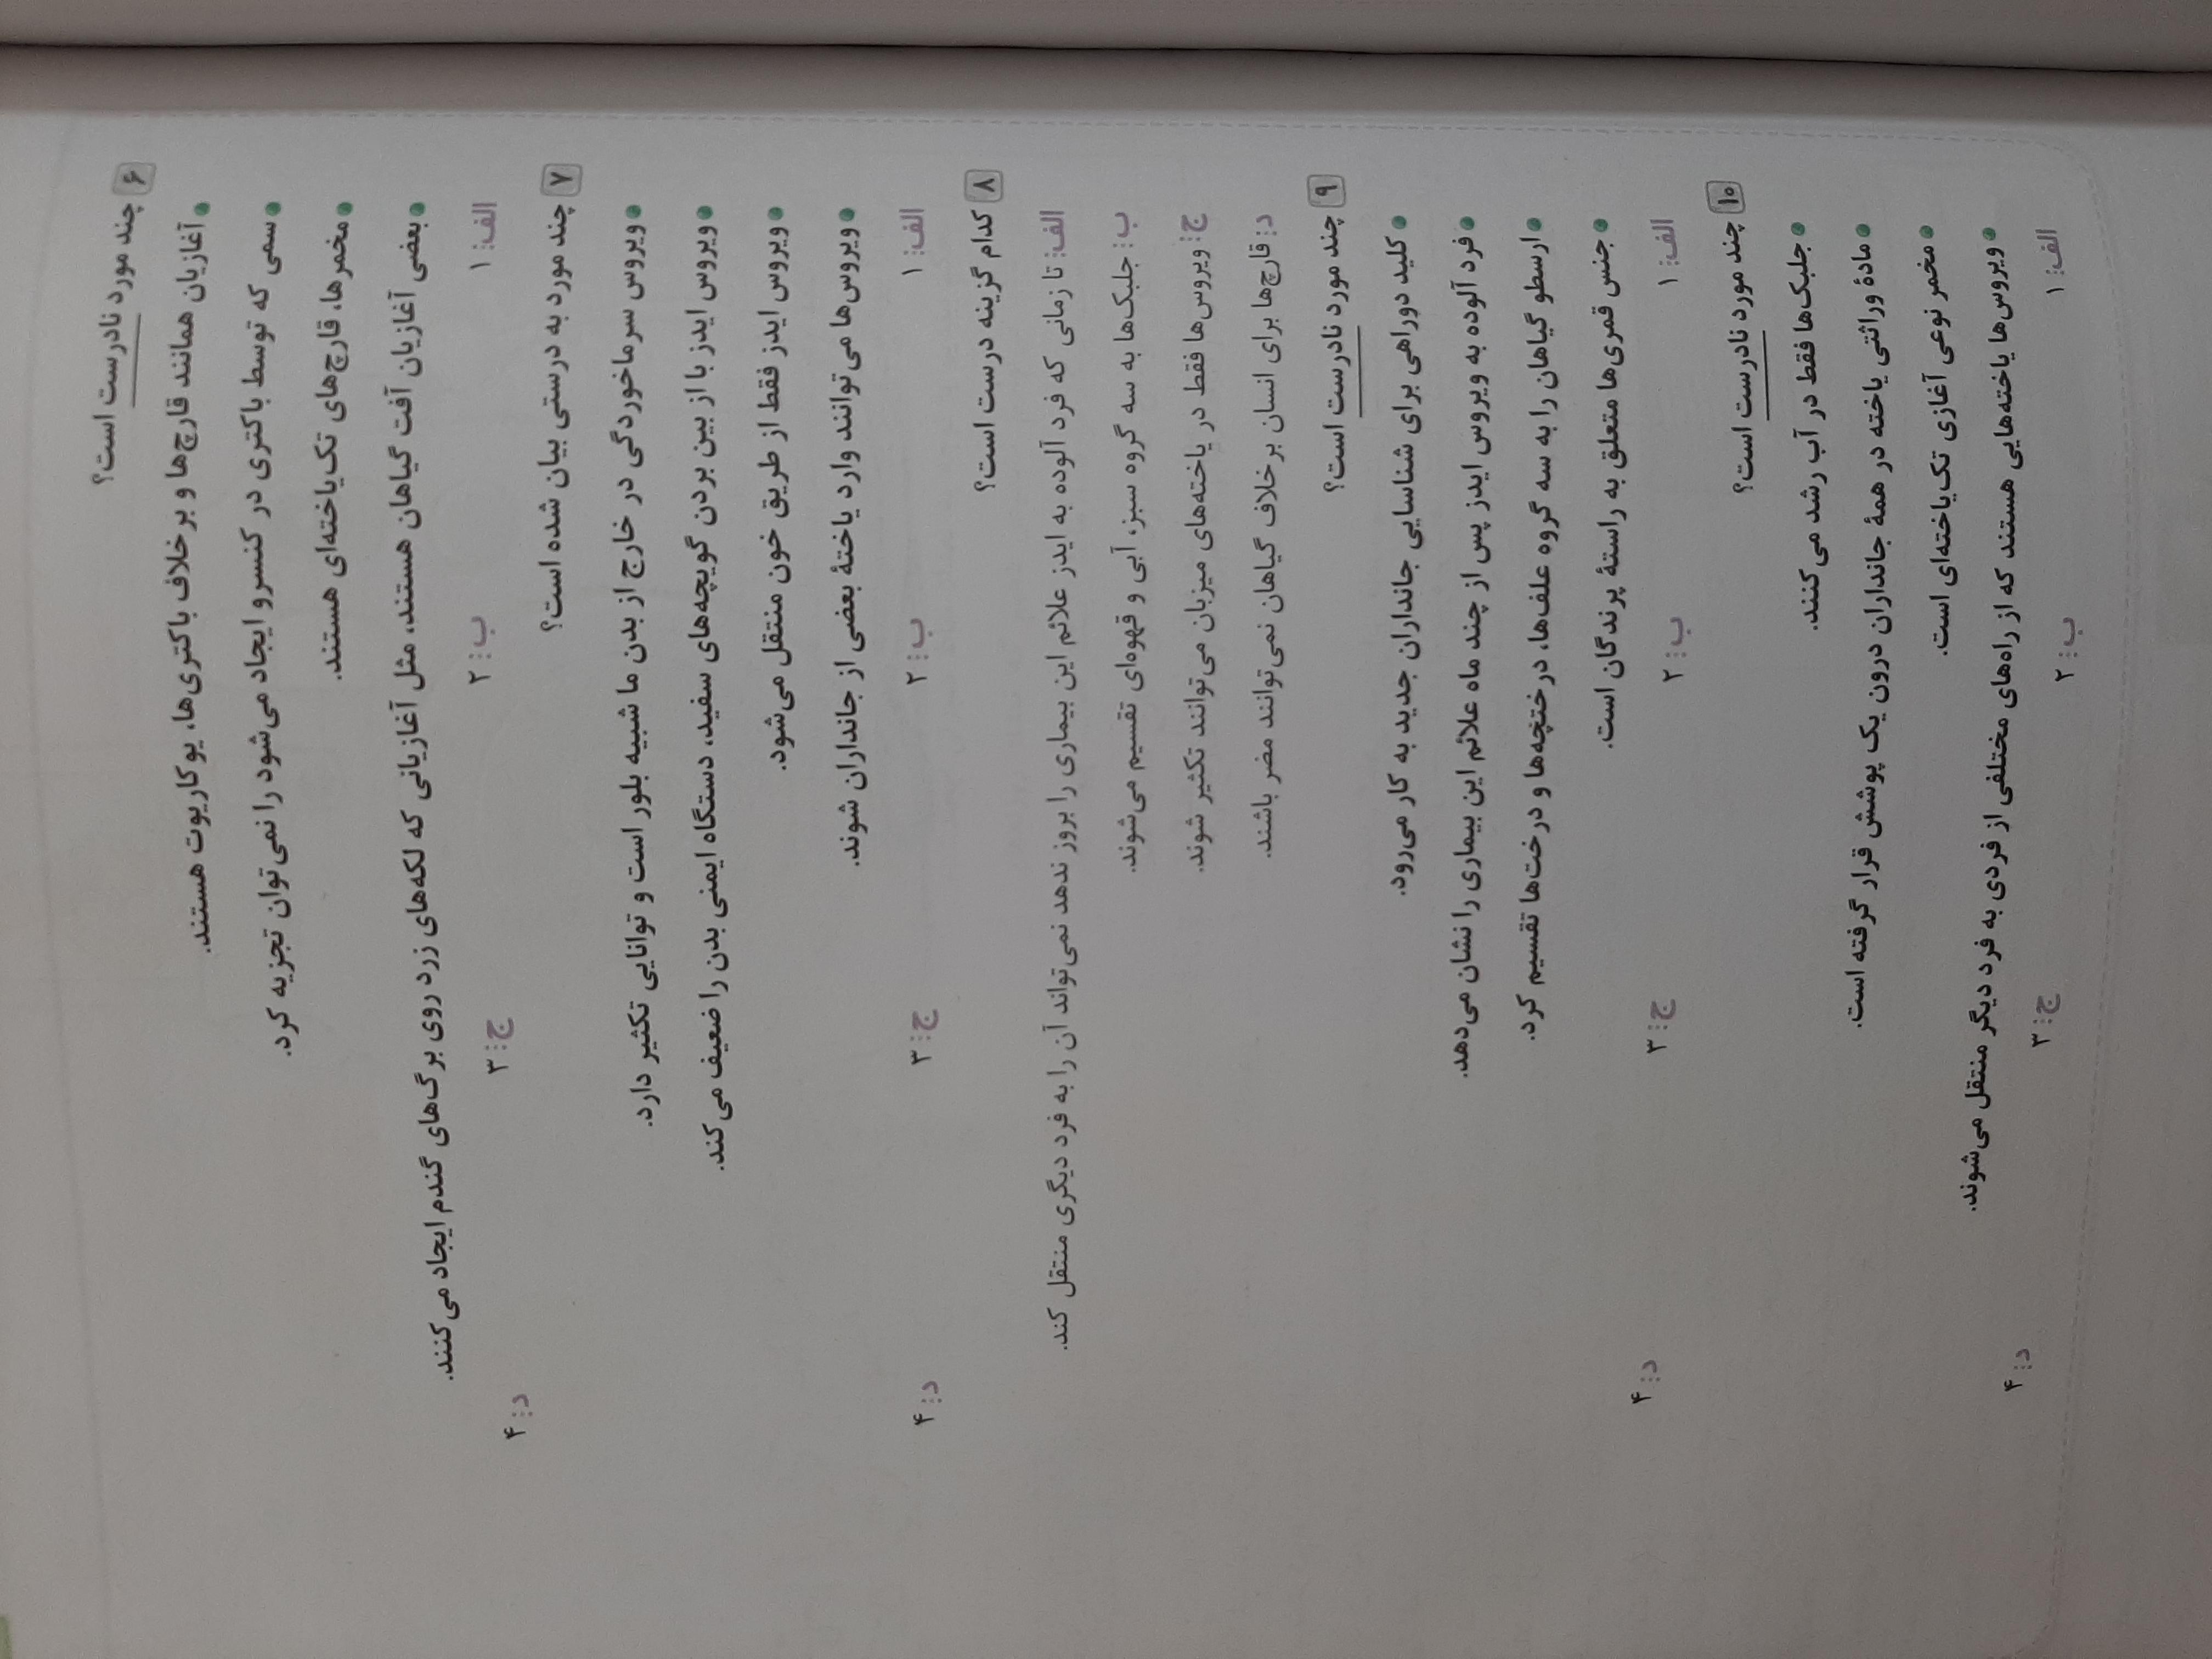 ۶ چند مورد نادرست است؟
● آغازیان همانند قارچ‌ها و برخلاف باکتری‌ها، یوکاریوت هستند.
● سمی که توسط باکتری در کنسرو ایجاد می‌شود را نمی‌توان تجزیه کرد.
● مخمرها، قارچ‌های تک‌یاخته‌ای هستند.
● بعضی آغازیان آفت گیاهان هستند، مثل آغازیانی که لکه‌های زرد روی برگ‌های گندم ایجاد می‌کنند.
الف: ۱ ب: ۲ ج: ۳ د: ۴
۷ چند مورد به درستی بیان شده است؟
● ویروس سرماخوردگی در خارج از بدن ما شبیه بلور است و توانایی تکثیر دارد.
● ویروس ایدز با از بین بردن گویچه‌های سفید، دستگاه ایمنی بدن را ضعیف می‌کند.
● ویروس ایدز فقط از طریق خون منتقل می‌شود.
● ویروس‌ها می‌توانند وارد یاختهٔ بعضی از جانداران شوند.
الف: ۱ ب: ۲ ج: ۳ د: ۴
۸ کدام گزینه درست است؟
الف: تا زمانی که فرد آلوده به ایدز علائم این بیماری را بروز ندهد نمی‌تواند آن را به فرد دیگری منتقل کند.
ب: جلبک‌ها به سه گروه سبز، آبی و قهوه‌ای تقسیم می‌شوند.
ج: ویروس‌ها فقط در یاخته‌های میزبان می‌توانند تکثیر شوند.
د: قارچ‌ها برای انسان برخلاف گیاهان نمی‌توانند مضر باشند.
۹ چند مورد نادرست است؟
● کلید دوراهی برای شناسایی جانداران جدید به کار می‌رود.
● فرد آلوده به ویروس ایدز پس از چند ماه علائم این بیماری را نشان می‌دهد.
● ارسطو گیاهان را به سه گروه علف‌ها، درختچه‌ها و درخت‌ها تقسیم کرد.
● جنس قمری‌ها متعلق به راستهٔ پرندگان است.
الف: ۱ ب: ۲ ج: ۳ د: ۴
۱۰ چند مورد نادرست است؟
● جلبک‌ها فقط در آب رشد می‌کنند.
● مادهٔ وراثتی یاخته در همهٔ جانداران درون یک پوشش قرار گرفته است.
● مخمر نوعی آغازی تک‌یاخته‌ای است.
● ویروس‌ها یاخته‌هایی هستند که از راه‌های مختلفی از فردی به فرد دیگر منتقل می‌شوند.
الف: ۱ ب: ۲ ج: ۳ د: ۴